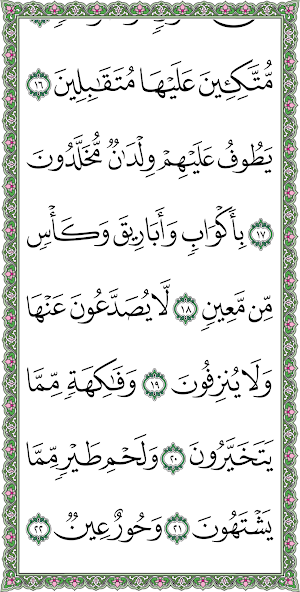 مُّتَّكِـِٔينَ عَلَيْهَا مُتَقَـٰبِلِينَ ١٦
يَطُوفُ عَلَيْهِمْ وِلْدَٰنٌ مُّخَلَّدُونَ
١٧ بِأَكْوَابٍ وَأَبَارِيقَ وَكَأْسٍ
مِّن مَّعِينٍ ١٨ لَّا يُصَدَّعُونَ عَنْهَا
وَلَا يُنزِفُونَ ١٩ وَفَـٰكِهَةٍ مِّمَّا
يَتَخَيَّرُونَ ٢٠ وَلَحْمِ طَيْرٍ مِّمَّا
يَشْتَهُونَ ٢١ وَحُورٌ عِينٌ ٢٢